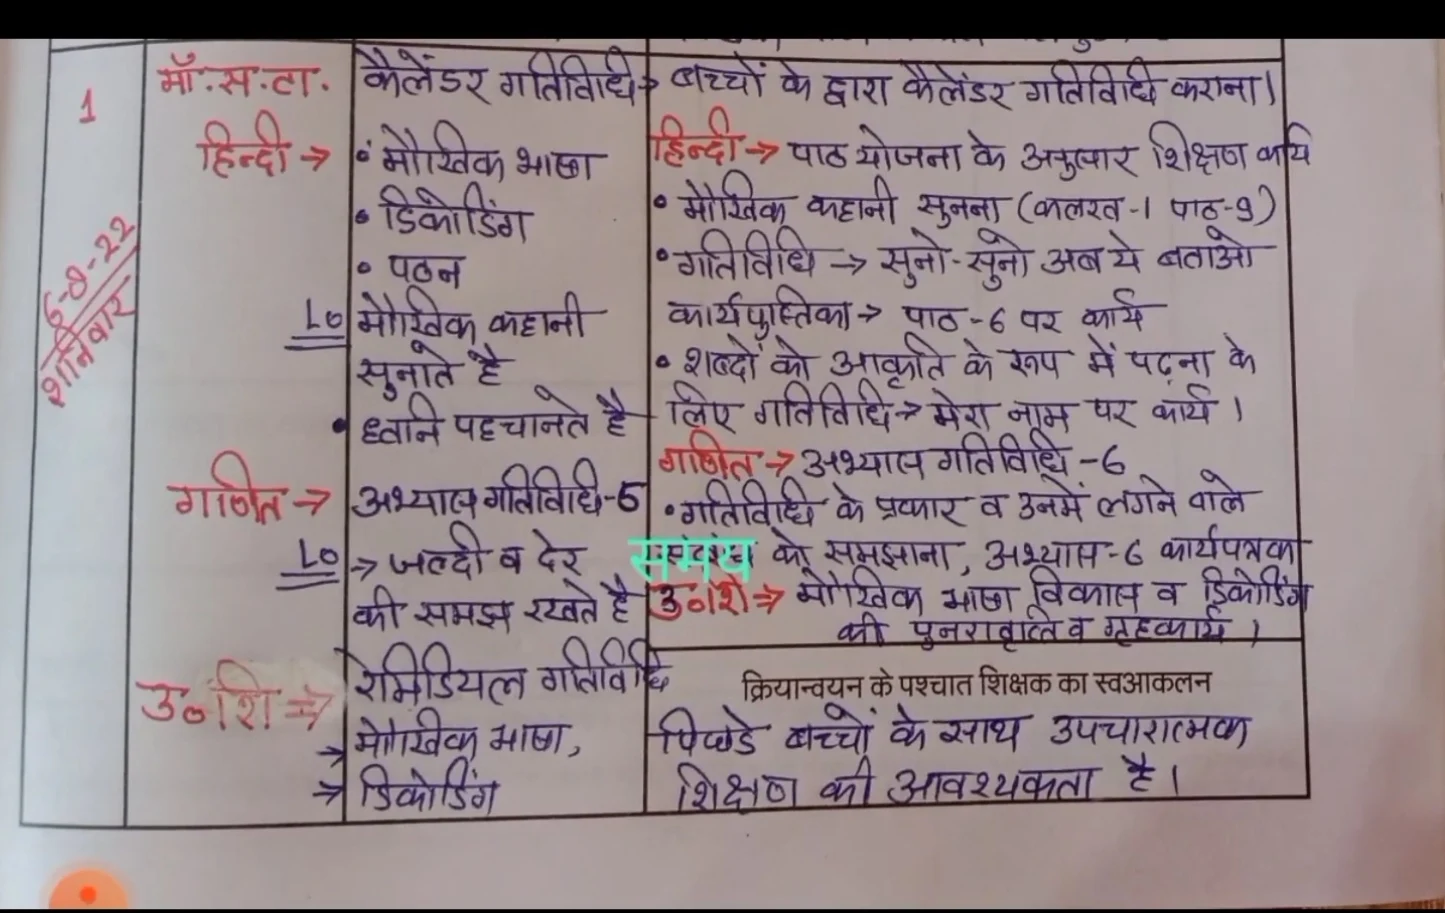 1
6-8-22
शनिवार
मॉ.स.टा.
कैलेंडर गतिविधि→
बच्चों के द्वारा कैलेंडर गतिविधि कराना।
हिन्दी →
• मौखिक भाषा
• डिकोडिंग
• पठन
LO
मौखिक कहानी
सुनाते है
• ध्वनि पहचानते है
गणित →
अभ्यास गतिविधि-5
LO
→ जल्दी व देर
की समझ रखते है
उ०शि ⇒
रेमिडियल गतिविधि
→ मौखिक भाषा,
→ डिकोडिंग
हिन्दी → पाठ योजना के अनुसार शिक्षण कार्य
• मौखिक कहानी सुनना (कलरव-1 पाठ-9)
• गतिविधि → सुनो-सुनो अब ये बताओ
कार्यपुस्तिका → पाठ-6 पर कार्य
• शब्दों को आकृति के रूप में पढ़ना के
लिए गतिविधि → मेरा नाम पर कार्य ।
गणित → अभ्यास गतिविधि -6
• गतिविधि के प्रकार व उनमें लगने वाले
समय
को समझाना, अभ्यास-6 कार्यपत्रक
उ०शि ⇒ मौखिक भाषा विकास व डिकोडिंग
की पुनरावृत्ति व गृहकार्य ।
क्रियान्वयन के पश्चात शिक्षक का स्वआकलन
पिछडे बच्चों के साथ उपचारात्मक
शिक्षण की आवश्यकता है।